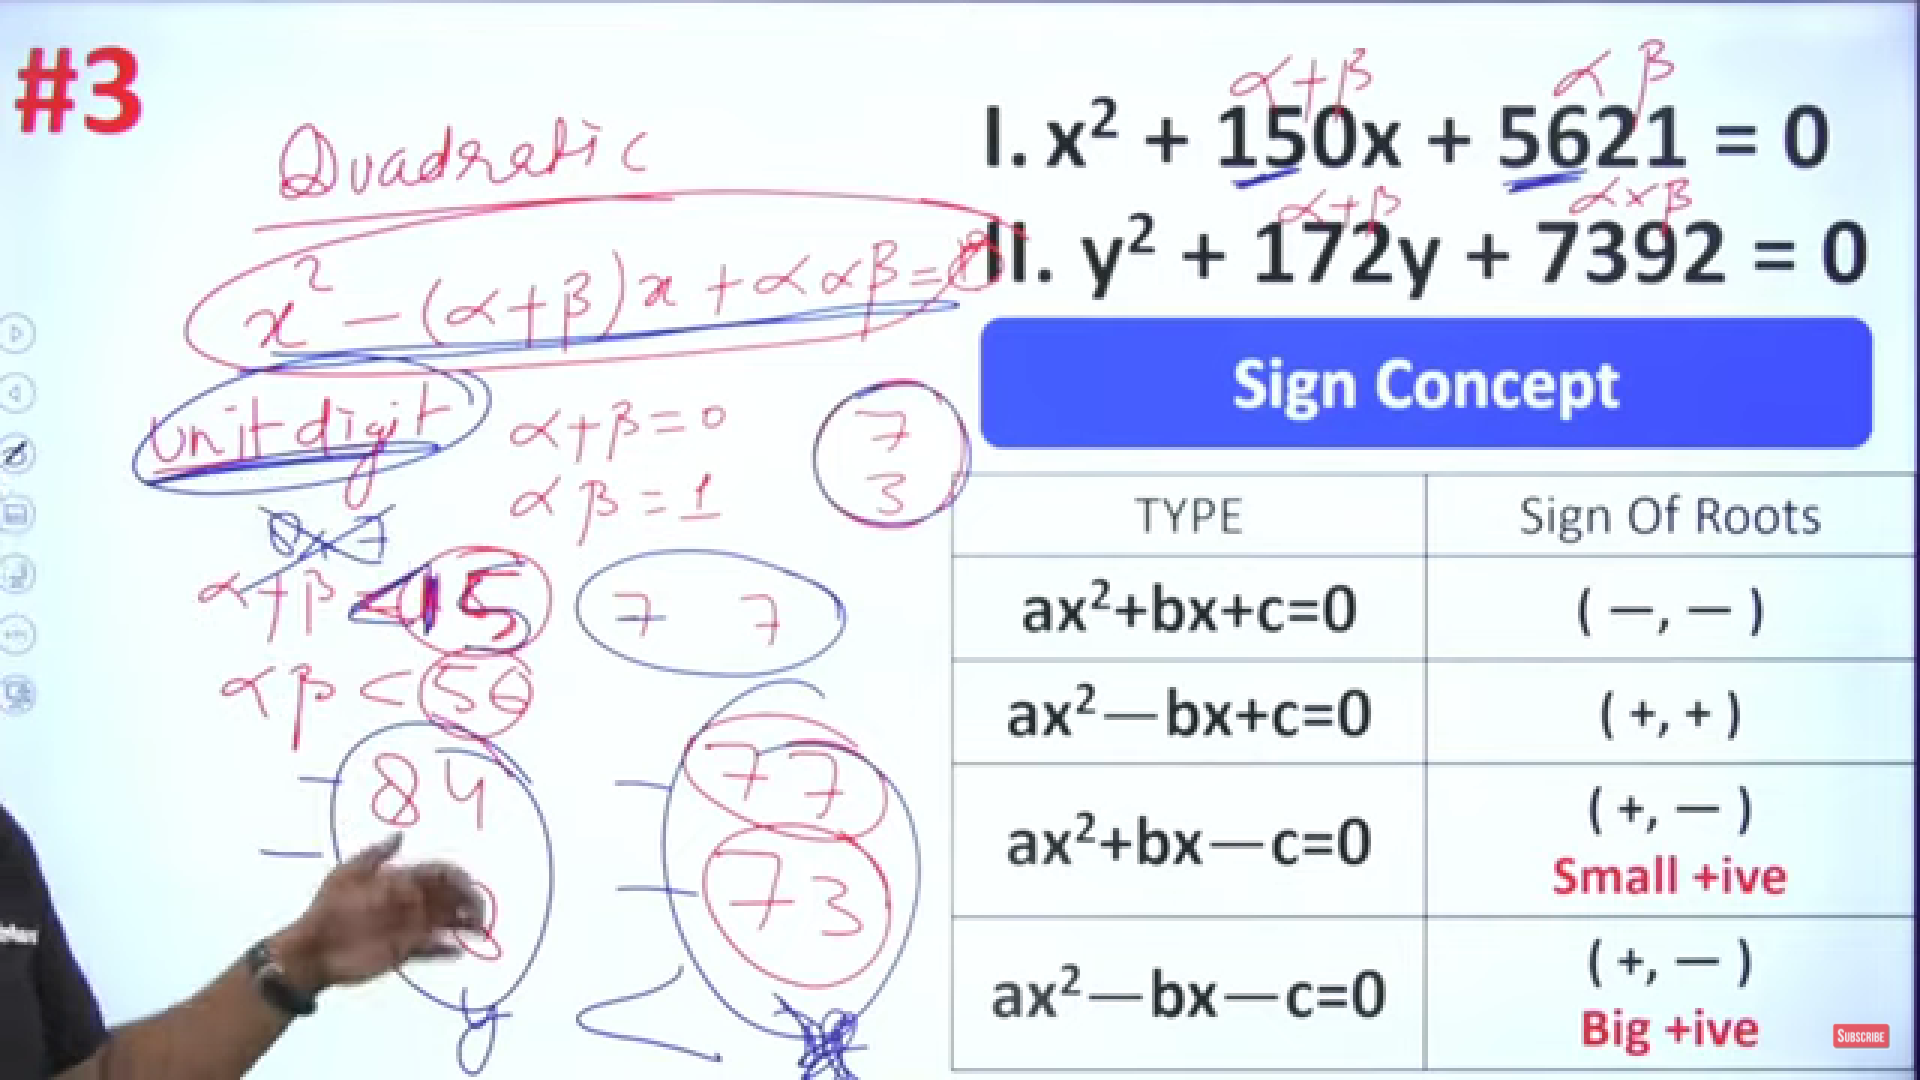 #3
Quadratic
x² − (α+β)x + ααβ = 0
unit digit
α+β = 0
αβ = 1
7
3
α+β
15
7 7
αβ < 56
84
77
73
y
α+β
αβ
I. x² + 150x + 5621 = 0
α+β
α×β
II. y² + 172y + 7392 = 0
Sign Concept
TYPE
Sign Of Roots
ax²+bx+c=0
( —, — )
ax²—bx+c=0
( +, + )
ax²+bx—c=0
( +, — )
Small +ive
ax²—bx—c=0
( +, — )
Big +ive
SUBSCRIBE